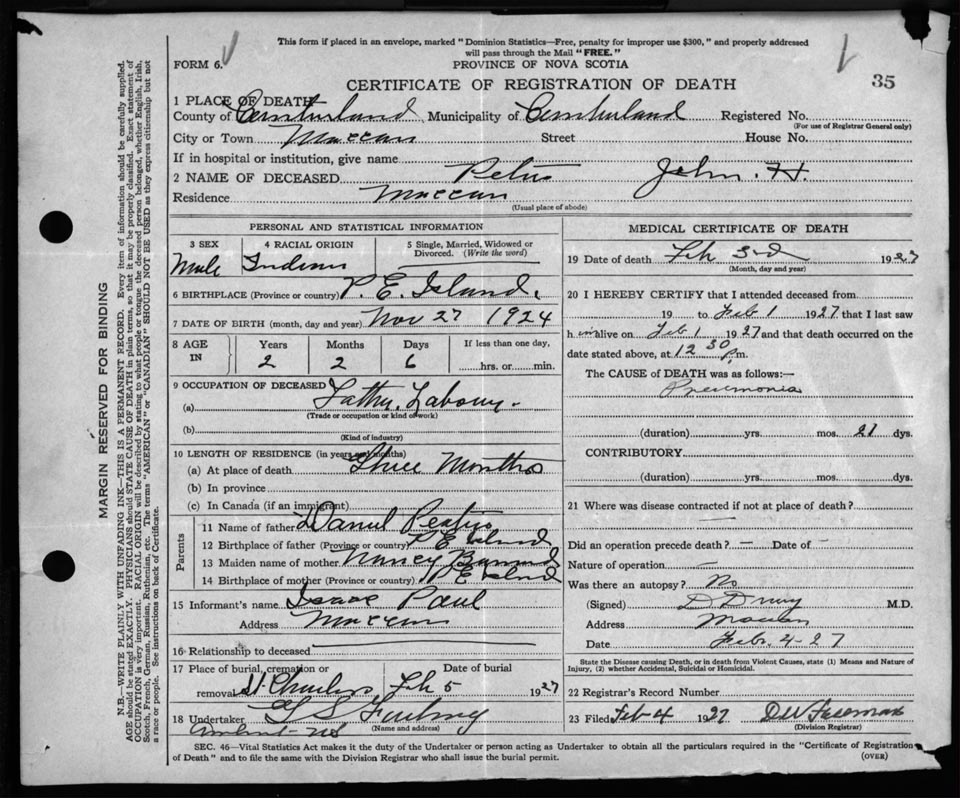 This form if placed in an envelope, marked "Dominion Statistics—Free, penalty for improper use $300," and properly addressed
will pass through the Mail "FREE."
FORM 6. PROVINCE OF NOVA SCOTIA
CERTIFICATE OF REGISTRATION OF DEATH 35
1 PLACE OF DEATH
County of Cumberland Municipality of Cumberland Registered No.
(For use of Registrar General only)
City or Town Maccan Street House No.
If in hospital or institution, give name
2 NAME OF DECEASED John. H.
Residence Maccan
(Usual place of abode)
PERSONAL AND STATISTICAL INFORMATION
3 SEX 4 RACIAL ORIGIN 5 Single, Married, Widowed or
Divorced. (Write the word)
Male Indian
6 BIRTHPLACE (Province or country) P. E. Island.
7 DATE OF BIRTH (month, day and year) Nov 27 1924
8 AGE IN Years Months Days If less than one day,
2 2 6 hrs. or min.
9 OCCUPATION OF DECEASED
(a)
(Trade or occupation or kind of work)
(b)
(Kind of industry)
10 LENGTH OF RESIDENCE (in years and months)
(a) At place of death Three Months
(b) In province
(c) In Canada (if an immigrant)
Parents
11 Name of father Daniel
12 Birthplace of father (Province or country) P E Island
13 Maiden name of mother Nancy
14 Birthplace of mother (Province or country) P E Island
15 Informant's name Isaac Paul
Address Maccan
16 Relationship to deceased
17 Place of burial, cremation or Date of burial
removal St. Charles Feb 5 1927
18 Undertaker
(Name and address)
Amherst NS
MEDICAL CERTIFICATE OF DEATH
19 Date of death Feb 3rd 1927
(Month, day and year)
20 I HEREBY CERTIFY that I attended deceased from
19 to Feb 1 1927 that I last saw
h im alive on Feb 1 1927 and that death occurred on the
date stated above, at 12 30 p.m.
The CAUSE of DEATH was as follows:—
Pneumonia
(duration) yrs. mos. 21 dys.
CONTRIBUTORY
(duration) yrs. mos. dys.
21 Where was disease contracted if not at place of death?
Did an operation precede death? — Date of —
Nature of operation —
Was there an autopsy? No
(Signed) M.D.
Address Maccan
Date Feb. 4-27
State the Disease causing Death, or in death from Violent Causes, state (1) Means and Nature of
Injury, (2) whether Accidental, Suicidal or Homicidal.
22 Registrar's Record Number
23 Filed Feb 4 1927
(Division Registrar)
SEC. 46—Vital Statistics Act makes it the duty of the Undertaker or person acting as Undertaker to obtain all the particulars required in the "Certificate of Registration
of Death" and to file the same with the Division Registrar who shall issue the burial permit. (OVER)
MARGIN RESERVED FOR BINDING
N.B.—WRITE PLAINLY WITH UNFADING INK—THIS IS A PERMANENT RECORD. Every item of information should be carefully supplied.
AGE should be stated EXACTLY. PHYSICIANS should STATE CAUSE OF DEATH in plain terms, so that it may be properly classified. Exact statement of
OCCUPATION is very important. RACIAL ORIGIN will be described by stating to what people or tongue the deceased person belonged, whether English, Irish,
Scotch, French, German, Russian, Ruthenian, etc. The terms "AMERICAN" or "CANADIAN" SHOULD NOT BE USED as they express citizenship but not
a race or people. See instructions on back of Certificate.